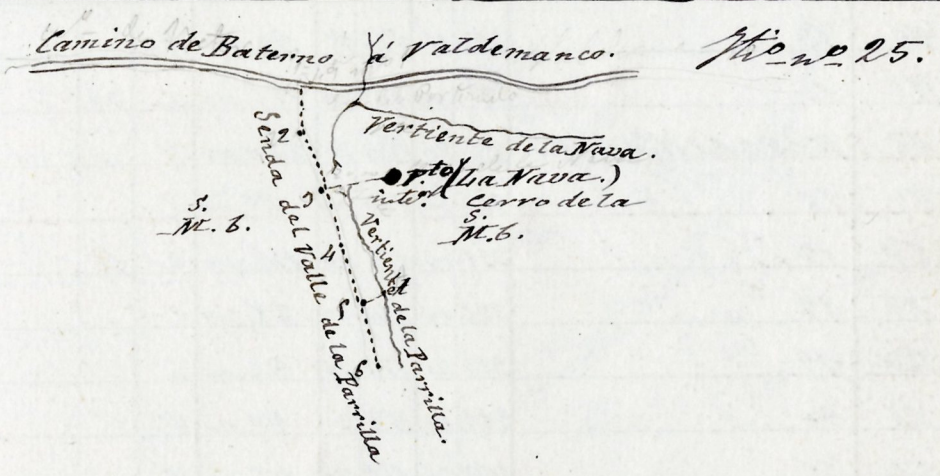 Camino de Baterno á Valdemanco.
Itio nº 25.
Vertiente de la Nava.
pto (La Nava.)
inter Cerro de la
S.
M. b.
S.
M. b.
Senda del Valle de la Parrilla
2
3
4
5
6
Vertiente de la Parrilla.